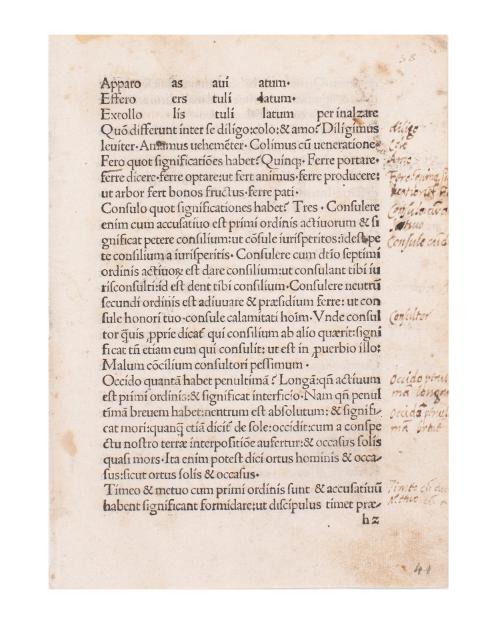 38
Apparo as aui atum·
Effero ers tuli latum·
Extollo lis tuli latum per inalzare
Quõ differunt inter se diligo:colo:& amo? Diligimus
leuiter· Amamus uehemẽter· Colimus cũ ueneratione·
Fero quot significatiões habet? Quinq;· Ferre portare·
ferre dicere·ferre optare:ut fert animus·ferre producere:
ut arbor fert bonos fructus·ferre pati·
Consulo quot significationes habet? Tres· Consulere
enim cum accusatiuo est primi ordinis actiuorum & si
gnificat petere consilium:ut cõsule iurisperitos:idest pe
te consilium a iurisperitis· Consulere cum dtĩo septimi
ordinis actiuoꝝ est dare consilium:ut consulant tibi iu
risconsulti:id est dent tibi consilium· Consulere neutrũ
secundi ordinis est adiuuare & præsidium ferre: ut con
sule honori tuo·consule calamitati hoĩm· Vnde consul
tor q̃uis ꝓprie dicat᷑ qui consilium ab alio quærit:signi
ficat tñ etiam eum qui consulit: ut est in ꝓuerbio illo:
Malum cõcilium consultori pessimum·
Occido quantã habet penultimã? Longã:qñ actiuum
est primi ordinis:& significat interficio· Nam qñ penul
timã breuem habet:neutrum est absolutum: & signifi-
cat mori:quanq̃ etiã dicit᷑ de sole:occidit:cum a conspe
ctu nostro terræ interpositiõe aufertur:& occasus solis
quasi mors· Ita enim potest dici ortus hominis & occa-
sus:sicut ortus solis & occasus·
Timeo & metuo cum primi ordinis sunt & accusatiuũ
habent significant formidare:ut discipulus timet præ-
h2
diligo
Colo
Amo
Consultor
Occido
longa
Occido
Timeo
44